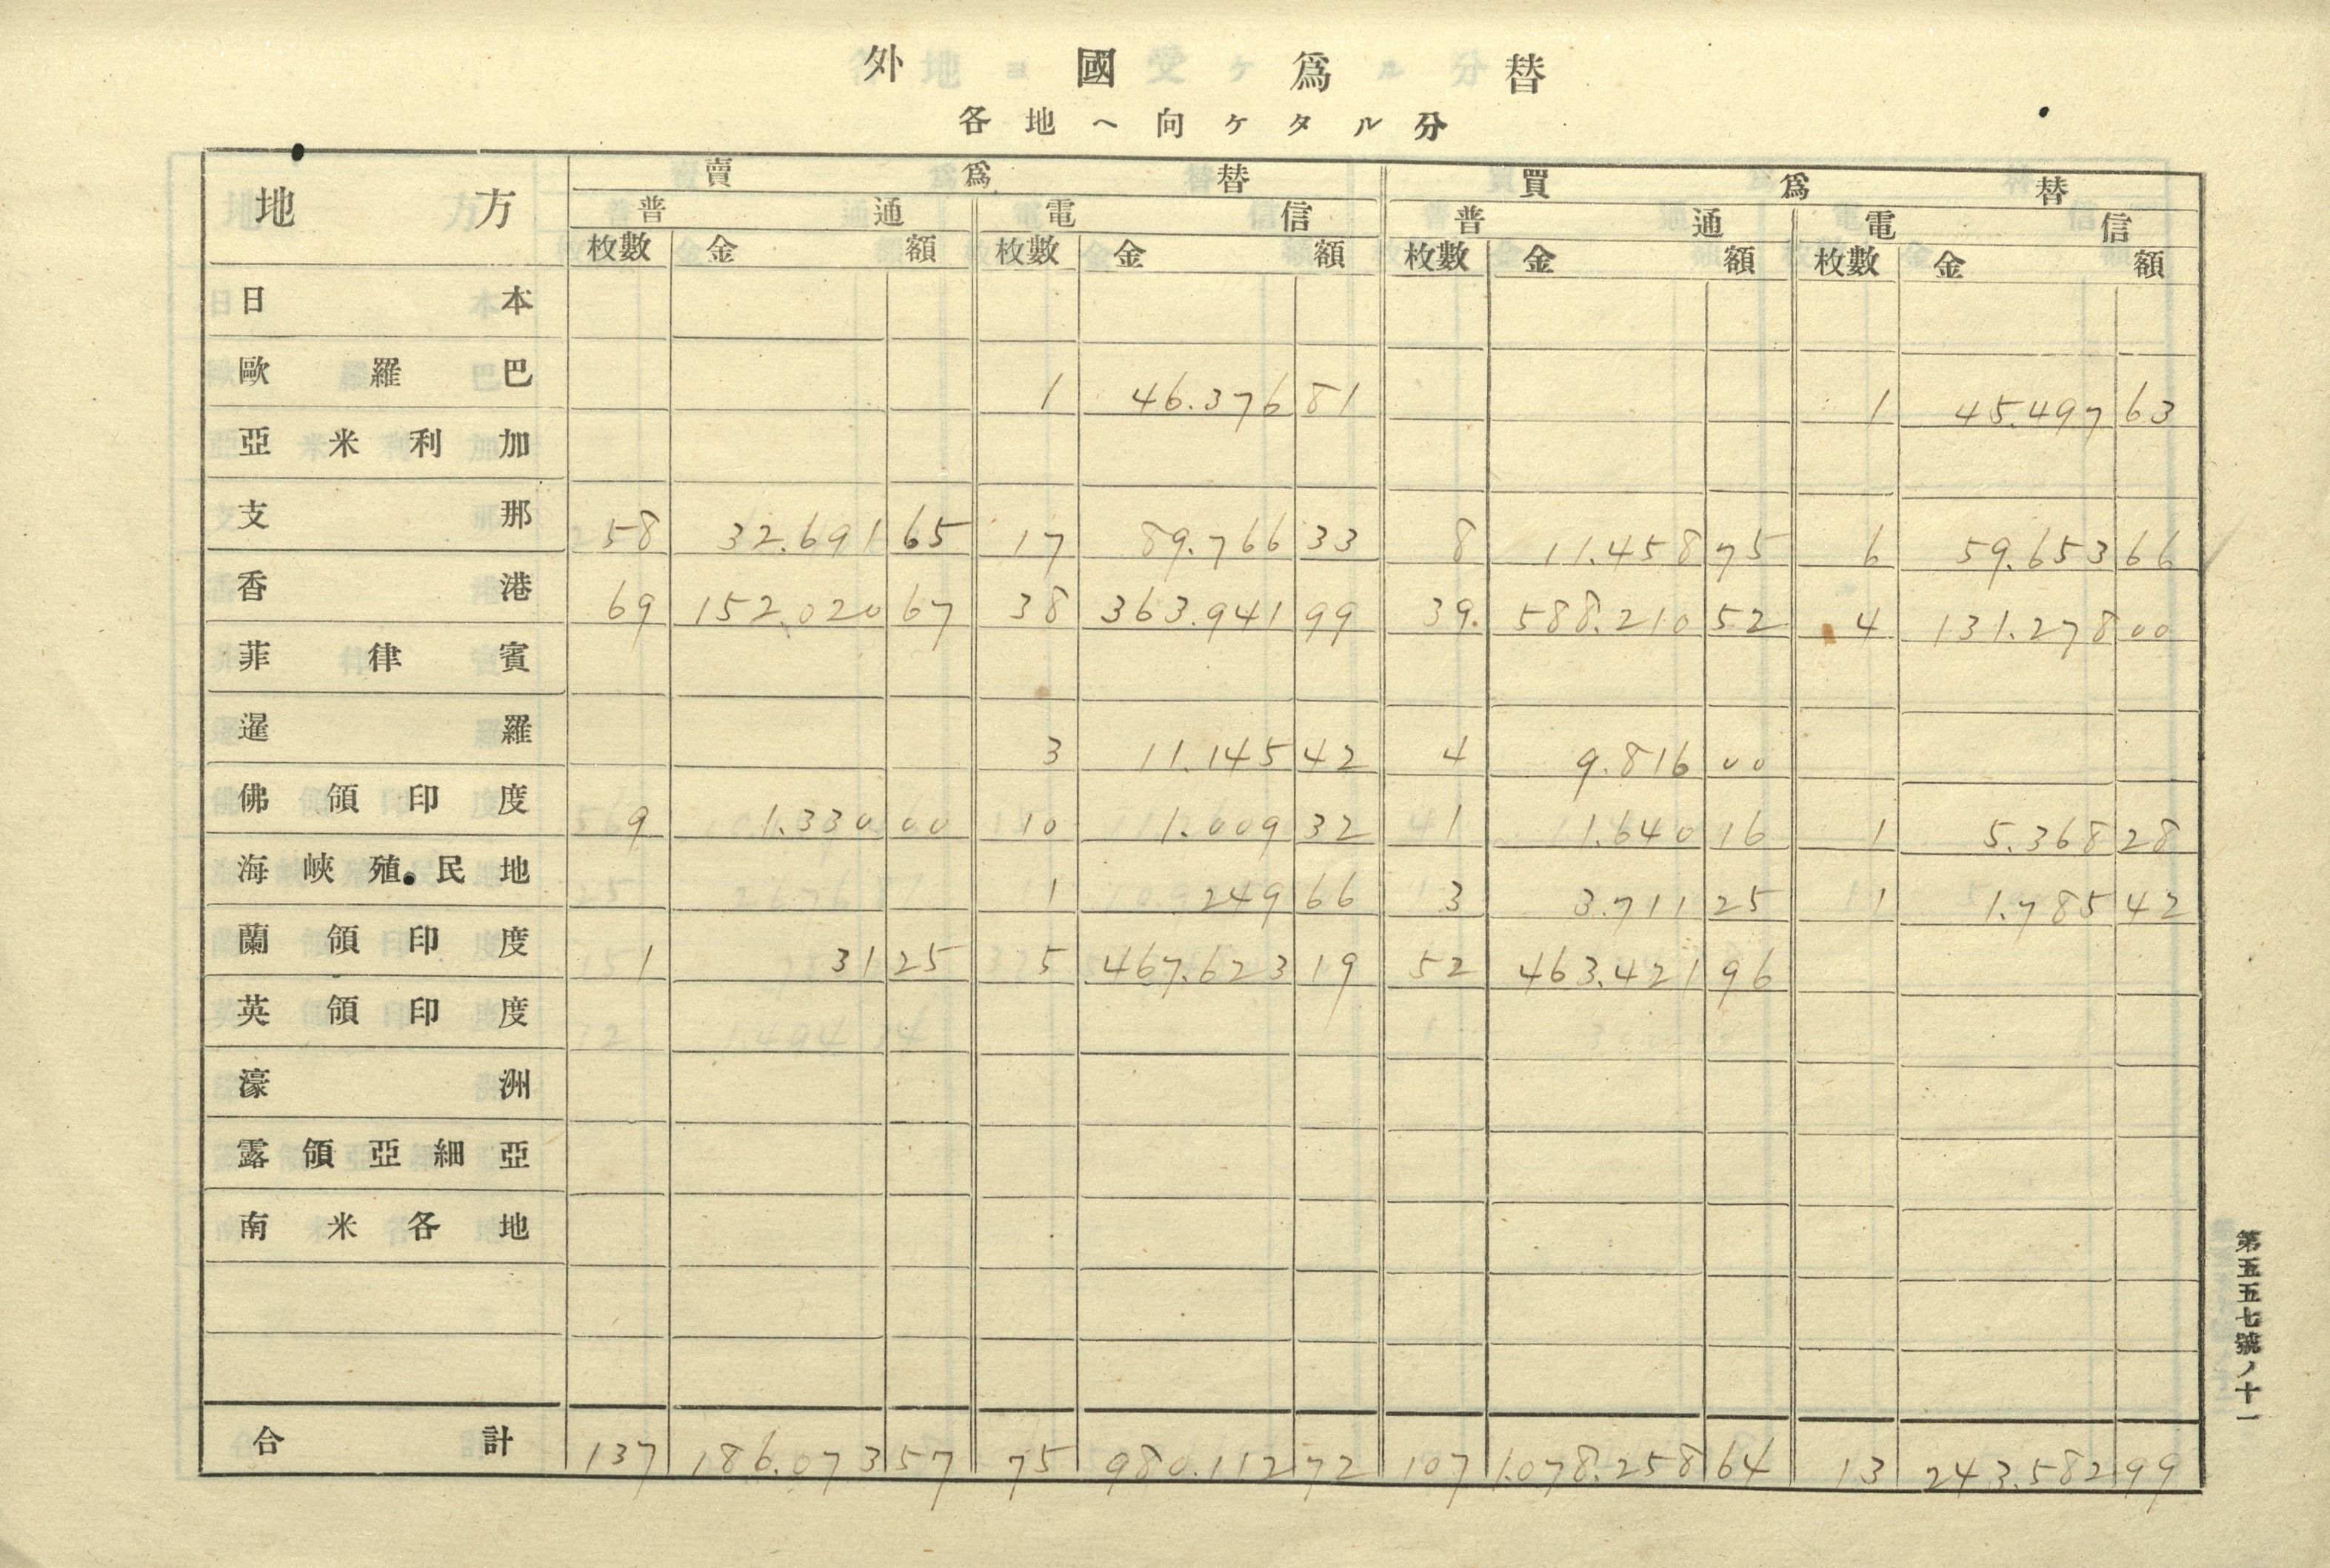 外國爲替
各地ヘ向ケタル分
地方 賣爲替 買爲替
普通 電信 普通 電信
枚數 金額 枚數 金額 枚數 金額 枚數 金額
日本
歐羅巴 1 46.376 81 1 45.497 63
亞米利加
支那 58 32.691 65 17 89.766 33 8 11.458 75 6 59.653 66
香港 69 152.020 67 38 363.941 99 39. 588.210 52 4 131.278 00
菲律賓
暹羅 3 11.145 42 4 9.816 00
佛領印度 9 1.330 00 10 1.009 32 1 1.640 16 1 5.368 28
海峽殖民地 1 249 66 3 3.711 25 1 1.785 42
蘭領印度 1 31 25 5 467.623 19 52 463.421 96
英領印度
濠洲
露領亞細亞
南米各地
合計 137 186.073 57 75 980.112 72 107 1.078.258 64 13 243.582 99
第五五七號ノ十一